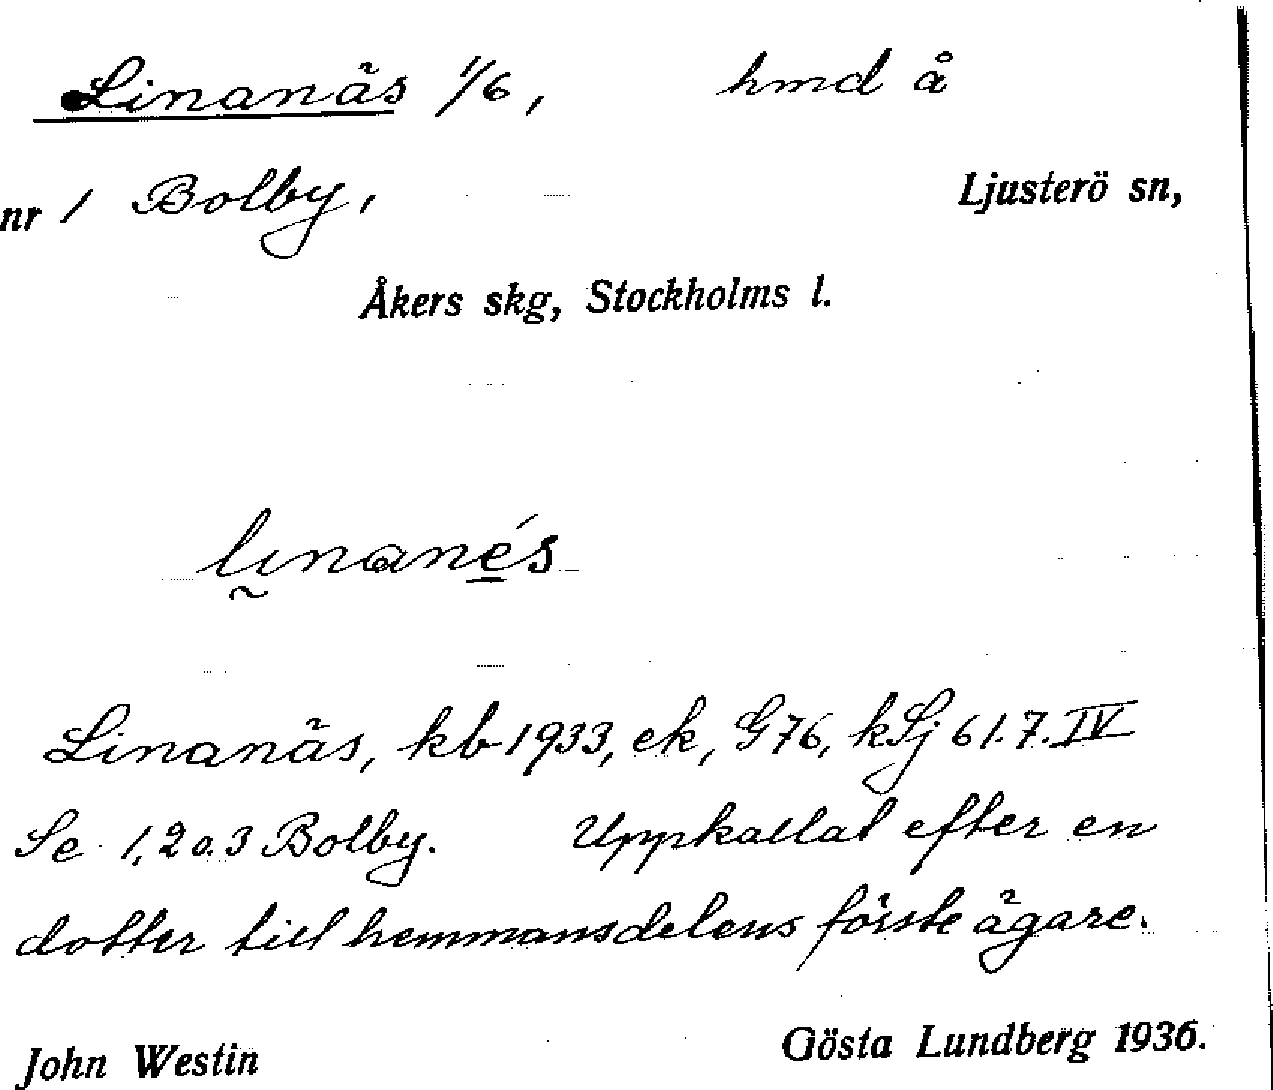 Linanäs 1/6, hmd å
nr 1 Bolby, Ljusterö sn,
Åkers skg, Stockholms l.
lı̰nanés
Linanäs, kb 1933, ek, G76, kLj 61.7.IV
Se 1, 2 o. 3 Bolby. Uppkallat efter en
dotter till hemmansdelens förste ägare.
John Westin Gösta Lundberg 1936.